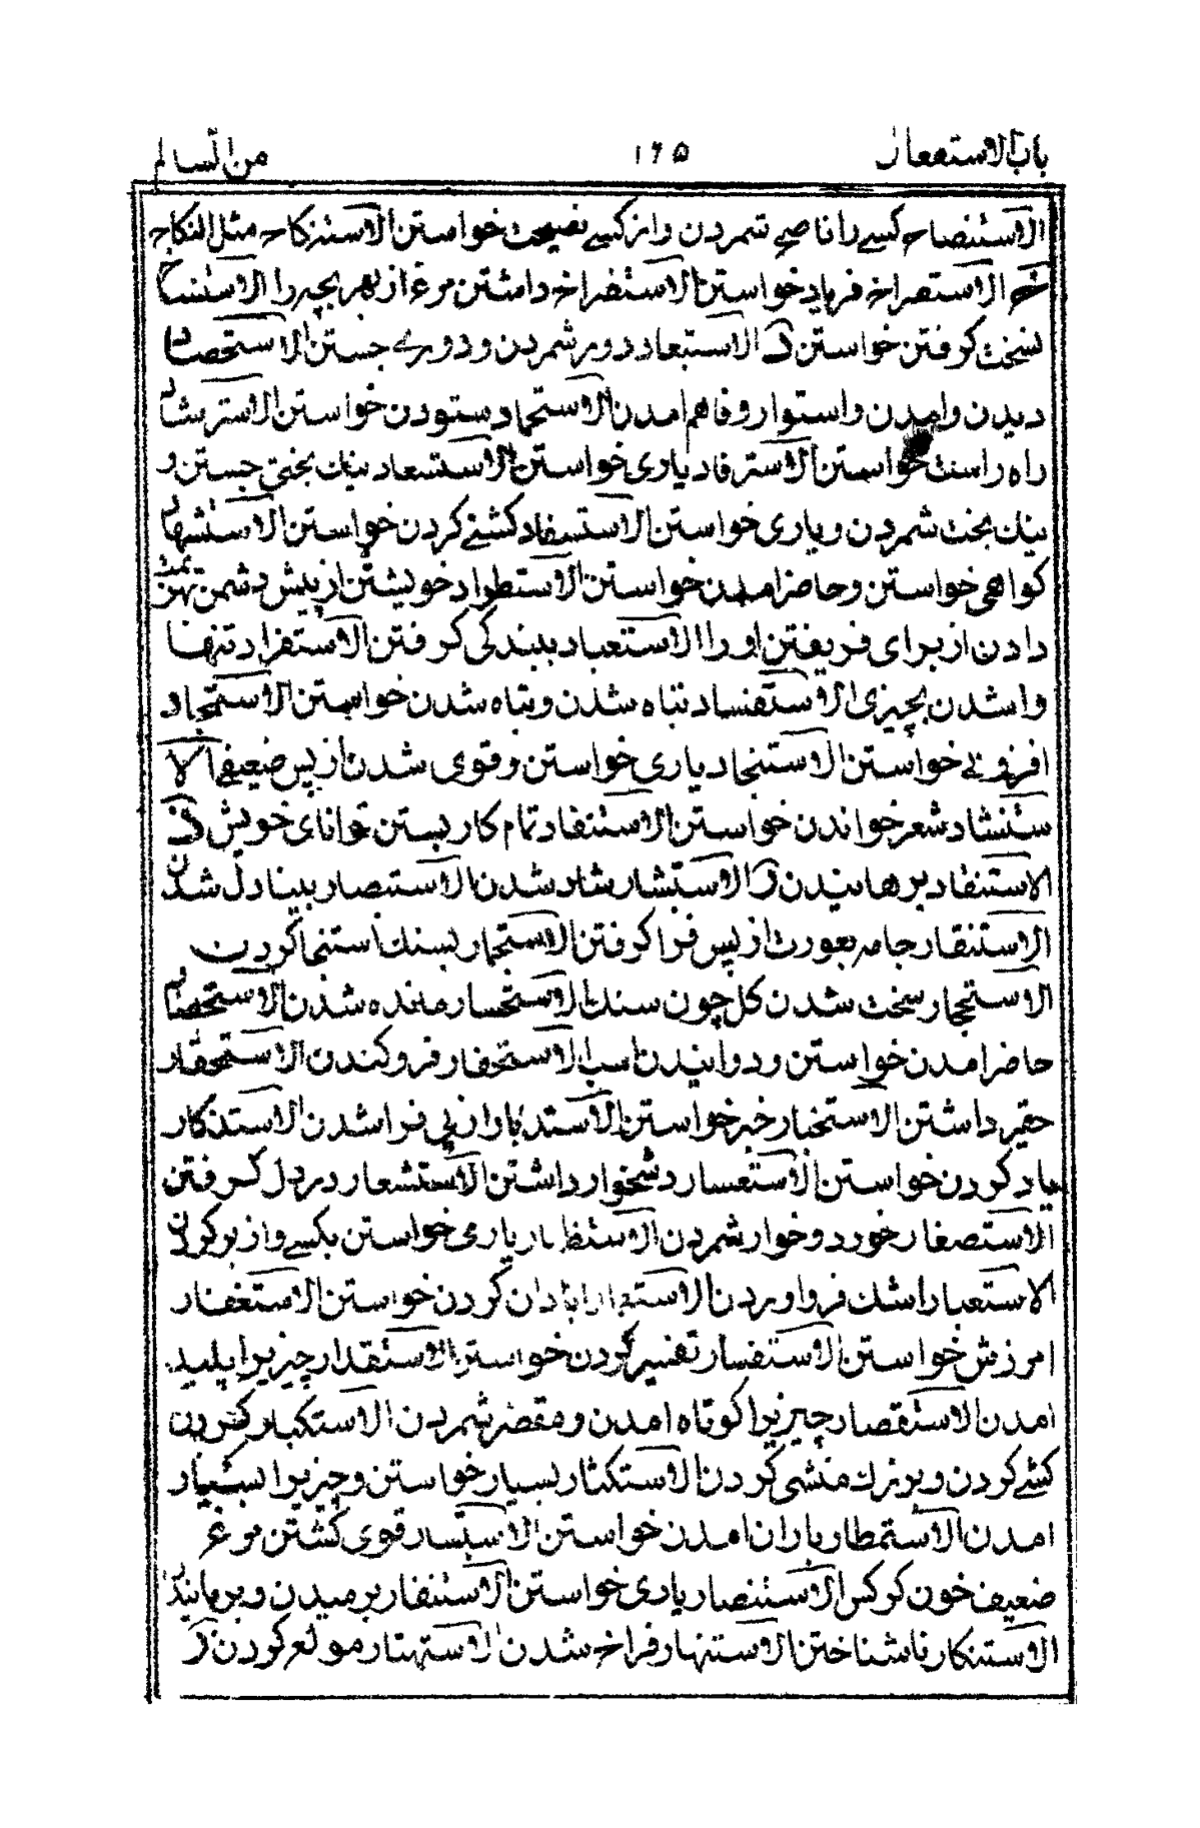 باب الاستفعال ۱۶۵ من السالم
الاستنصاح کسے را ناصح شمردن و از کسے نصیحت خواستن الاستنکاح مثل النکاح
خ الاستصراخ فریاد خواستن الاستفراخ داشتن مرغ از بهر بچه را الاستنساخ
نسخت گرفتن خواستن د الاستبعاد دور شمردن و دورے جستن الاستحصاد
دیدن وامدن واستوار وفاهم امدن الاستحماد ستودن خواستن الاسترشاد
راه راست خواستن الاسترفاد یاری خواستن الاستسعاد نیک بختی جستن و
نیک بخت شمردن و یاری خواستن الاستسفاد کشنے کردن خواستن الاستشهاد
کواهی خواستن و حاضر امدن خواستن الاستطراد خویشتن از پیش دشمن بهزیمت
دادن از برای فریفتن او را الاستعباد ببندگی گرفتن الاستفراد تنها
واشدن بچیزی الاستفساد تباه شدن و تباه شدن خواستن الاستمجاد
افزونے خواستن الاستنجاد یاری خواستن و قوی شدن از پس ضعیفے الا
ستنشاد شعر خواندن خواستن الاستنفاد تمام کار بستن توانای خویش ذ
الاستنقاذ برهانیدن ر الاستبشار شاد شدن الاستبصار بینادل شدن
الاستثفار جامه بعورت از پس فرا گرفتن الاستجمار بسنک استنجا کردن
الاستحجار سخت شدن کل چون سنک الاستحسار مانده شدن الاستحضار
حاضر امدن خواستن و دوانیدن اسب الاستحفار فرو کندن الاستحقار
حقیر داشتن الاستخبار خبر خواستن الاستدبار از پی فراشدن الاستذکار
یاد کردن خواستن الاستعسار دشخوار داشتن الاستشعار در دل گرفتن
الاستصغار خورد و خوار شمردن الاستظهار یارمی خواستن بکسے و از بر کردن
الاستعبار اشک فرو اوردن الاستعمار ابادان کردن خواستن الاستغفار
امرزش خواستن الاستفسار تفسیر کردن خواستن الاستقذار چیزیرا پلید
امدن الاستقصار چیزیرا کوتاه امدن و مقصر شمردن الاستکبار
کشے کردن و بزرک منشی کردن الاستکثار بسیار خواستن و چیزیرا بسیار
امدن الاستمطار باران امدن خواستن الاستنسار قوی کشتن مرغ
ضعیف چون کرکس الاستنصار یاری خواستن الاستنفار برمیدن و برمانیدن
الاستنکار ناشناختن الاستنهار فراخ شدن الاستهتار مولع کردن ز